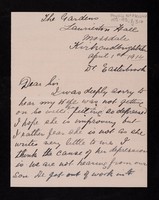 The Gardens
Laurieston Hall
Mossdale
Kirkcudbrightsh
April 1st 1914
Dr Easterbrook
Dear Sir
I was deeply sorry to
hear my Wife was not getting
on so well being as depressed
I hope she is improving but
I rather fear she is not as she
writes very little to me I
think the cause of her depression
is we are not hearing from our
son he got out of work out